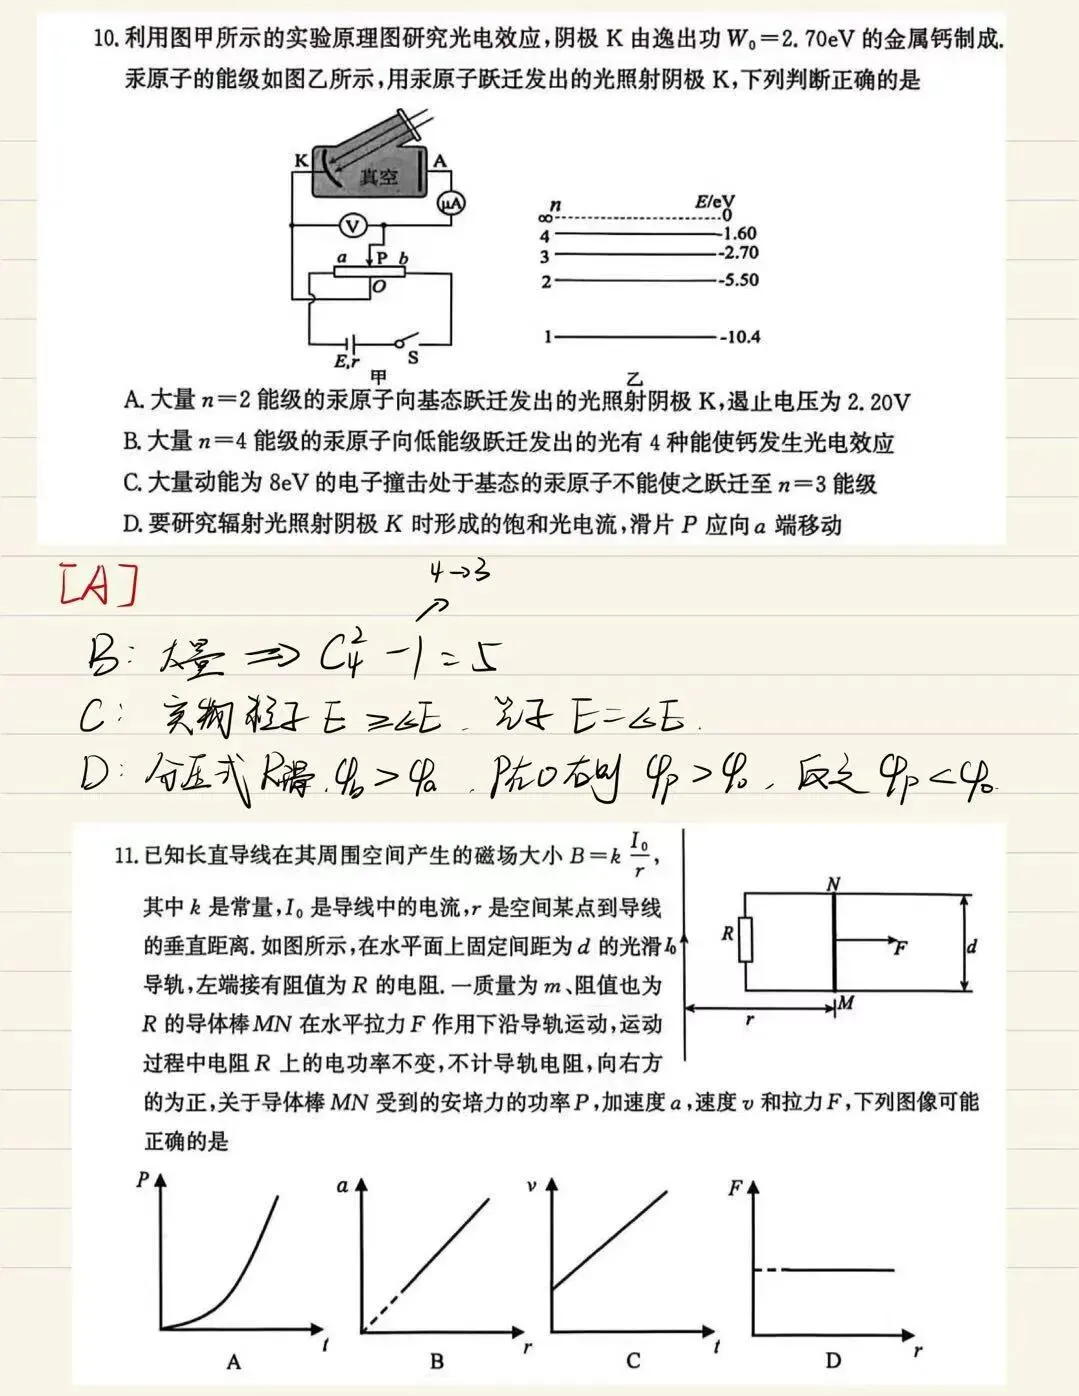 10. 利用图甲所示的实验原理图研究光电效应,阴极 K 由逸出功 W₀=2.70eV 的金属钙制成.
汞原子的能级如图乙所示,用汞原子跃迁发出的光照射阴极 K,下列判断正确的是
K
真空
A
μA
V
a P b
O
E,r
S
甲
n E/eV
∞ 0
4 -1.60
3 -2.70
2 -5.50
1 -10.4
乙
A. 大量 n=2 能级的汞原子向基态跃迁发出的光照射阴极 K,遏止电压为 2.20V
B. 大量 n=4 能级的汞原子向低能级跃迁发出的光有 4 种能使钙发生光电效应
C. 大量动能为 8eV 的电子撞击处于基态的汞原子不能使之跃迁至 n=3 能级
D. 要研究辐射光照射阴极 K 时形成的饱和光电流,滑片 P 应向 a 端移动
[A]
4→3
B: 大量 ⇒ C₄² -1 = 5
C: 实物粒子 E ≥ΔE. 光子 E=ΔE.
D: 分压式 R滑. φb > φa. P在O右则 φp > φo, 反之 φp < φo.
11. 已知长直导线在其周围空间产生的磁场大小 B=k I₀/r,
其中 k 是常量,I₀ 是导线中的电流,r 是空间某点到导线
的垂直距离. 如图所示,在水平面上固定间距为 d 的光滑
导轨,左端接有阻值为 R 的电阻. 一质量为 m、阻值也为
R 的导体棒 MN 在水平拉力 F 作用下沿导轨运动,运动
过程中电阻 R 上的电功率不变,不计导轨电阻,向右方
的为正,关于导体棒 MN 受到的安培力的功率 P,加速度 a,速度 v 和拉力 F,下列图像可能
正确的是
N
R
I₀
F
d
M
r
P
t
A
a
r
B
v
t
C
F
r
D